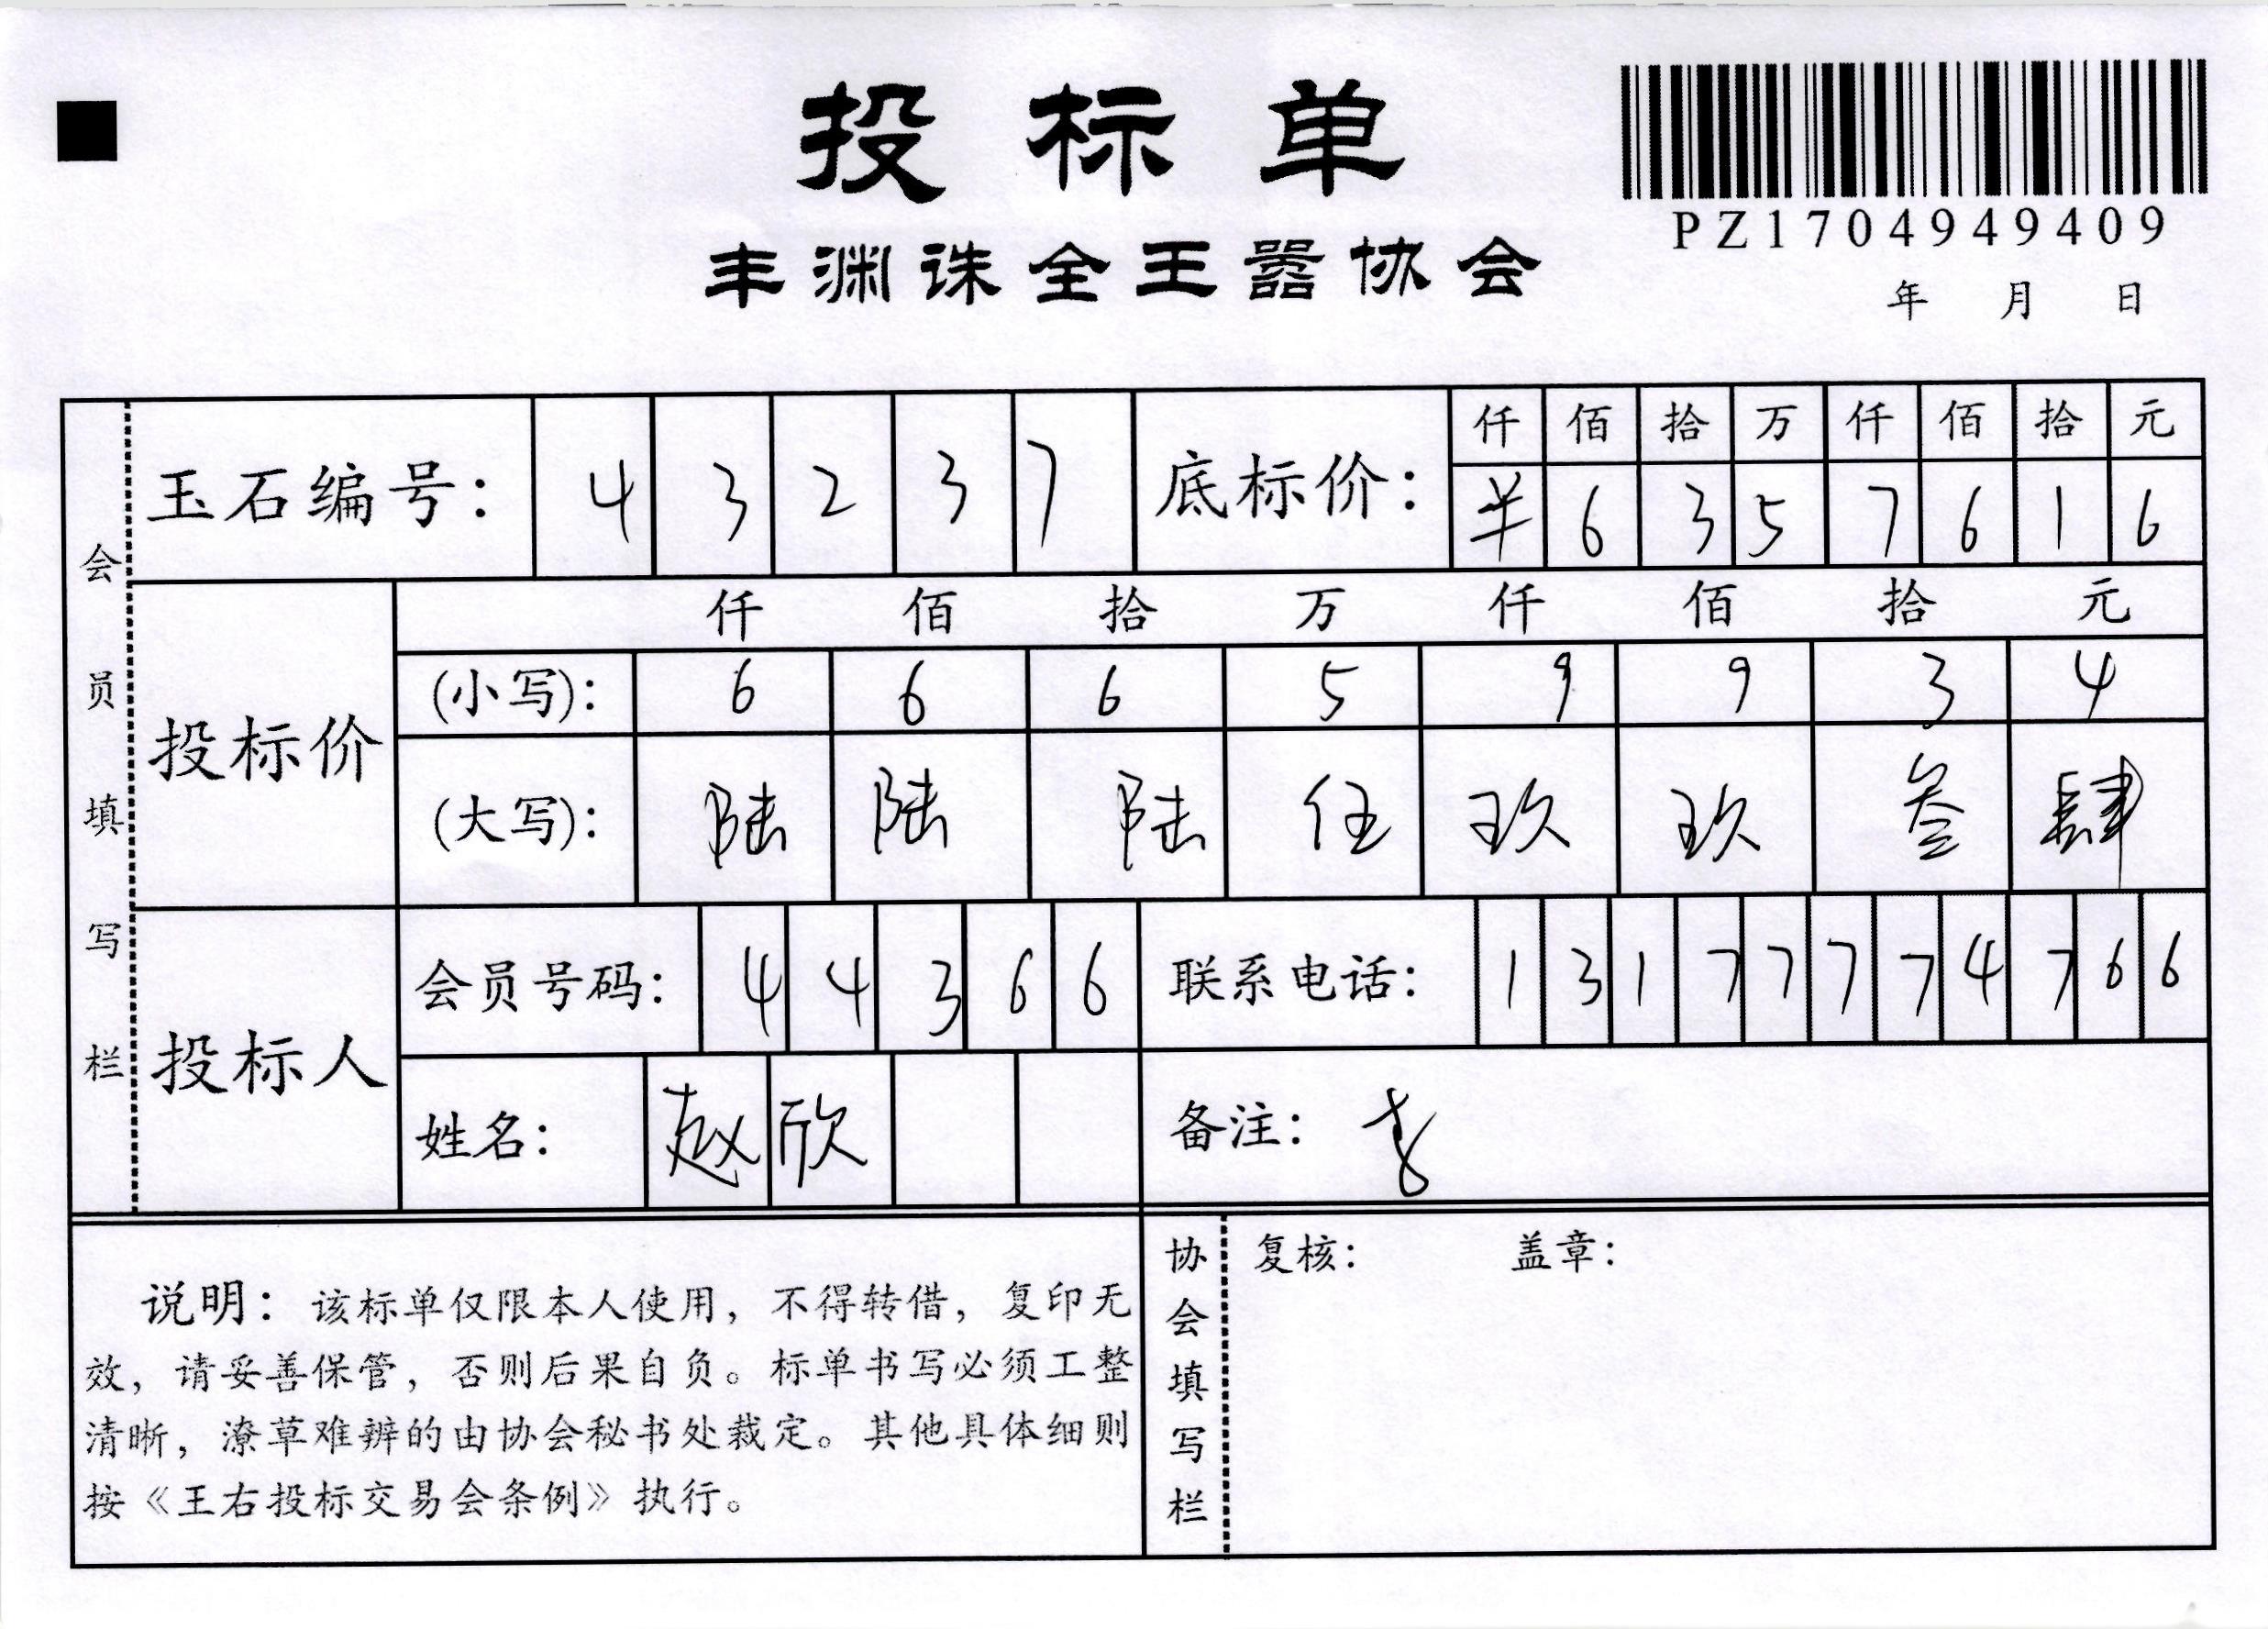 投标单
PZ1704949409
丰渊诛全王嚣协会
年 月 日
会员填写栏
玉石编号： 4 3 2 3 7
底标价：
仟 佰 拾 万 仟 佰 拾 元
羊 6 3 5 7 6 1 6
投标价
仟 佰 拾 万 仟 佰 拾 元
(小写)： 6 6 6 5 9 9 3 4
(大写)： 陆 陆 陆 伍 玖 玖 叁 肆
投标人
会员号码： 4 4 3 6 6
联系电话： 1 3 1 7 7 7 7 4 7 6 6
姓名： 赵 欣
备注：
说明：该标单仅限本人使用，不得转借，复印无
效，请妥善保管，否则后果自负。标单书写必须工整
清晰，潦草难辨的由协会秘书处裁定。其他具体细则
按《王右投标交易会条例》执行。
协会填写栏
复核： 盖章：